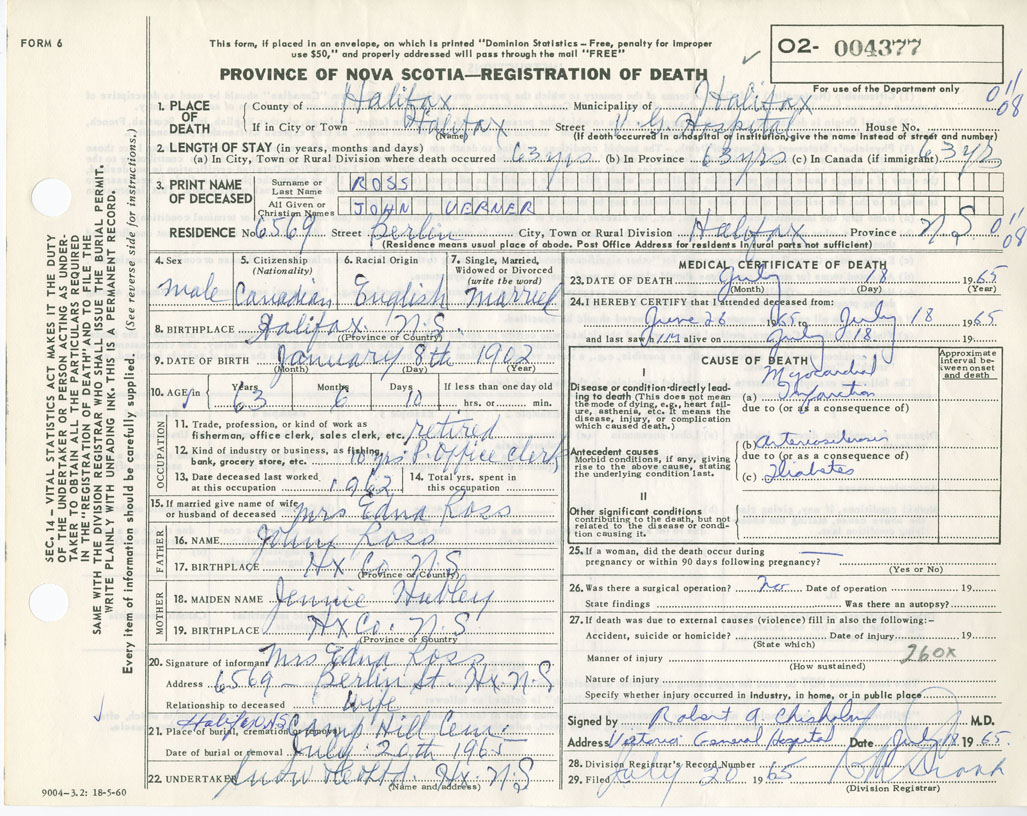 FORM 6
This form, if placed in an envelope, on which is printed "Dominion Statistics – Free, penalty for improper
use $50," and properly addressed will pass through the mail "FREE"
PROVINCE OF NOVA SCOTIA—REGISTRATION OF DEATH
✓ O2- 004377
For use of the Department only
SEC. 14 – VITAL STATISTICS ACT MAKES IT THE DUTY
OF THE UNDERTAKER OR PERSON ACTING AS UNDER-
TAKER TO OBTAIN ALL THE PARTICULARS REQUIRED
IN THE "REGISTRATION OF DEATH" AND TO FILE THE
SAME WITH THE DIVISION REGISTRAR WHO SHALL ISSUE THE BURIAL PERMIT.
WRITE PLAINLY WITH UNFADING INK-THIS IS A PERMANENT RECORD.
Every item of information should be carefully supplied. (See reverse side for instructions.)
1. PLACE OF DEATH { County of Halifax Municipality of Halifax 011 08
If in City or Town Halifax Street V. G. Hospital House No.
(Name) (If death occurred in a hospital or institution, give the name instead of street and number)
2. LENGTH OF STAY (in years, months and days)
(a) In City, Town or Rural Division where death occurred 63 yrs (b) In Province 63 yrs (c) In Canada (if immigrant) 63 yrs
3. PRINT NAME OF DECEASED { Surname or Last Name ROSS
All Given or Christian Names JOHN VERNER
RESIDENCE No. 6569 Street Berlin City, Town or Rural Division Halifax Province N S 011 08
(Residence means usual place of abode. Post Office Address for residents in rural parts not sufficient)
4. Sex Male
5. Citizenship (Nationality) Canadian
6. Racial Origin English
7. Single, Married, Widowed or Divorced (write the word) Married
8. BIRTHPLACE Halifax N.S.
(Province or Country)
9. DATE OF BIRTH January 8th 1902
(Month) (Day) (Year)
10. AGE in Years 63 Months 6 Days 10 If less than one day old hrs. or min.
OCCUPATION
11. Trade, profession, or kind of work as fisherman, office clerk, sales clerk, etc. retired
12. Kind of industry or business, as fishing, bank, grocery store, etc. 10 yrs P. Office clerk
13. Date deceased last worked at this occupation 1962
14. Total yrs. spent in this occupation
15. If married give name of wife or husband of deceased Mrs Edna Ross
FATHER
16. NAME John Ross
17. BIRTHPLACE Hx Co N.S
(Province or Country)
MOTHER
18. MAIDEN NAME Jennie Hubley
19. BIRTHPLACE Hx Co. N.S
(Province or Country)
20. Signature of informant Mrs Edna Ross
Address 6569 – Berlin St Hx. N.S
Relationship to deceased Wife
21. Place of burial, cremation or removal Halifax N.S. Camp Hill Cem.
Date of burial or removal July 20th 1965
22. UNDERTAKER Snow & Co Ltd. Hx. N.S
(Name and address)
9004–3.2: 18-5-60
MEDICAL CERTIFICATE OF DEATH
23. DATE OF DEATH July 18 1965
(Month) (Day) (Year)
24. I HEREBY CERTIFY that I attended deceased from:
June 26 1965 to July 18 1965
and last saw him alive on July 18. 1965.
CAUSE OF DEATH
Approximate interval between onset and death
I
Disease or condition directly leading to death (This does not mean the mode of dying, e.g., heart failure, asthenia, etc. It means the disease, injury, or complication which caused death.)
(a) Myocardial Infarction
due to (or as a consequence of)
Antecedent causes
Morbid conditions, if any, giving rise to the above cause, stating the underlying condition last.
(b) Arteriosclerosis
due to (or as a consequence of)
(c) Diabetes
II
Other significant conditions
contributing to the death, but not related to the disease or condition causing it.
25. If a woman, did the death occur during
pregnancy or within 90 days following pregnancy?
(Yes or No)
26. Was there a surgical operation? No Date of operation 19
State findings Was there an autopsy?
27. If death was due to external causes (violence) fill in also the following:–
Accident, suicide or homicide? Date of injury 19
(State which)
Manner of injury 260X
(How sustained)
Nature of injury
Specify whether injury occurred in industry, in home, or in public place
Signed by Robert A. Chisholm M.D.
Address Victoria General Hospital Date July 18 1965.
28. Division Registrar's Record Number
29. Filed July 20 1965
(Division Registrar)